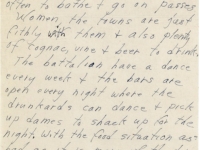 often to bathe & go on passes
Women, the towns are just
filthy with them & also plenty
of cognac, vine & beer to drink.
The battalion have a dance
every week & the bars are
open every night where the
drunkards can dance & pick
up dames to shack up for the
night. With the food situation as